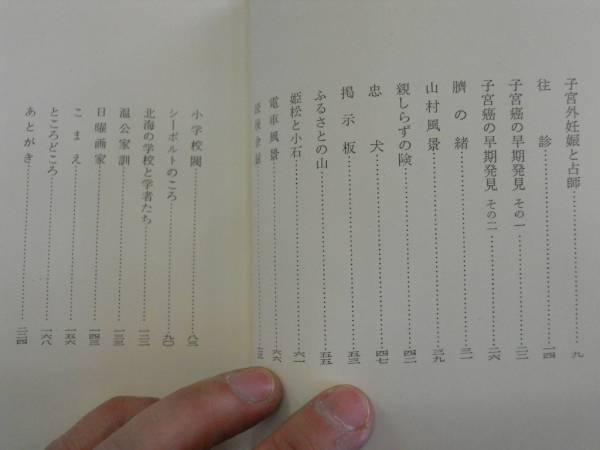 子宮外妊娠と占師……九
往診……一四
子宮癌の早期発見 その一……二二
子宮癌の早期発見 その二……二六
臍の緒……三一
山村風景……三九
親しらずの険……四二
忠犬……四七
掲示板……五三
ふるさとの山……五五
姫松と小石……六一
電車風景……六六
小学校閥……八三
シーボルトのころ……九〇
北海の学校と学者たち……一二二
温公家訓……一三三
日曜画家……一四三
こまえ……一五六
ところどころ……一六八
あとがき……二三四